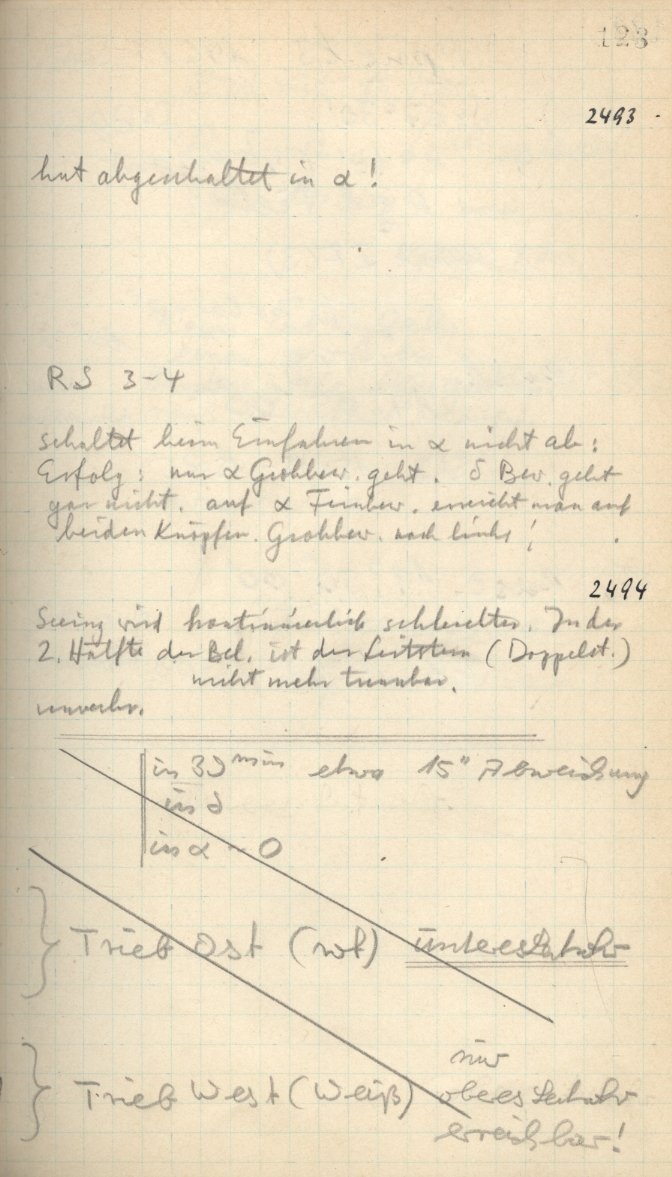 123
2493
hat abgeschaltet in α!
RS 3-4
schaltet beim Einfahren in α nicht ab:
Erfolg: nur α Grobbew. geht. δ Bew. geht
gar nicht. auf α Feinbew. erreicht man auf
beiden Knöpfen. Grobbew. nach links!
2494
Seeing wird kontinuierlich schlechter. In der
2. Hälfte der Bel. ist der Leitstern (Doppelst.)
nicht mehr trennbar.
in 30 min etwa 15" Abweichung
in δ
in α ~ 0
} Trieb Ost (rot) unteres Leitrohr
} Trieb West (Weiß) nur
oberes Leitrohr
erreichbar!